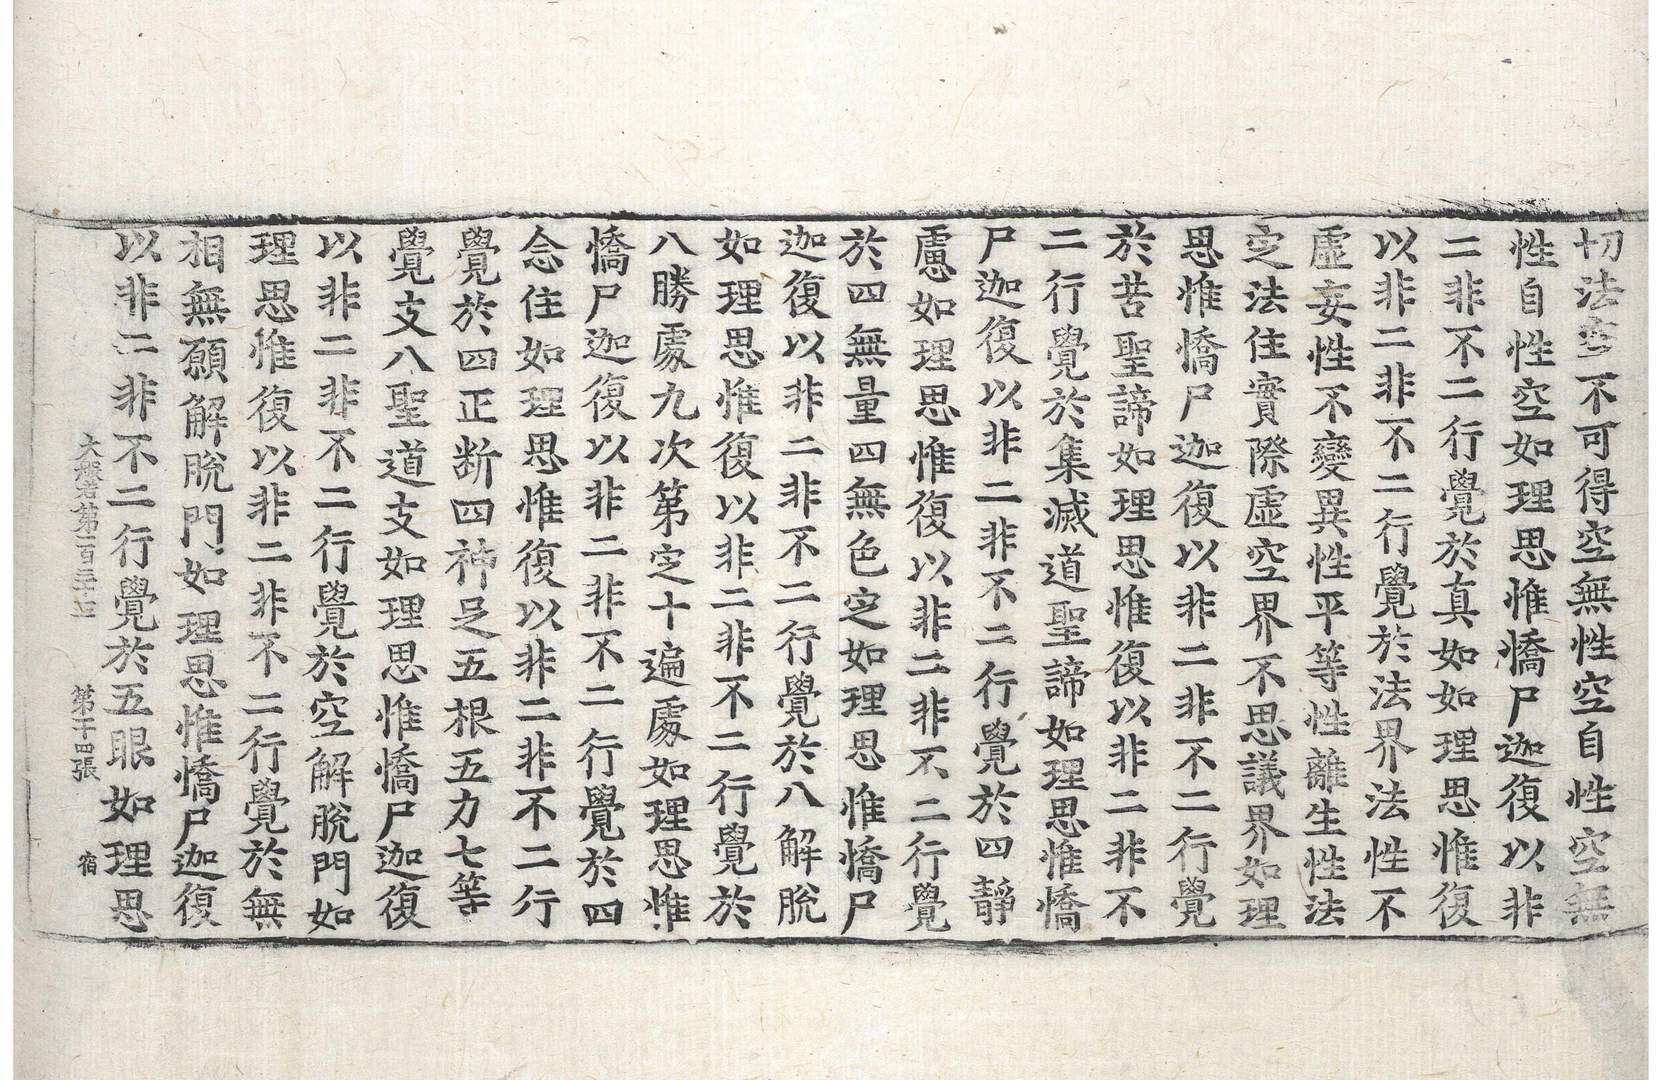 切法空不可得空無性空自性空無
性自性空如理思惟憍尸迦復以非
二非不二行覺於真如如理思惟復
以非二非不二行覺於法界法性不
虛妄性不變異性平等性離生性法
定法住實際虛空界不思議界如理
思惟憍尸迦復以非二非不二行覺
於苦聖諦如理思惟復以非二非不
二行覺於集滅道聖諦如理思惟憍
尸迦復以非二非不二行覺於四靜
慮如理思惟復以非二非不二行覺
於四無量四無色定如理思惟憍尸
迦復以非二非不二行覺於八解脫
如理思惟復以非二非不二行覺於
八勝處九次第定十遍處如理思惟
憍尸迦復以非二非不二行覺於四
念住如理思惟復以非二非不二行
覺於四正断四神足五根五力七等
覺支八聖道支如理思惟憍尸迦復
以非二非不二行覺於空解脫門如
理思惟復以非二非不二行覺於無
相無願解脫門如理思惟憍尸迦復
以非二非不二行覺於五眼如理思
大般若第一百三十七 第十四張 宿